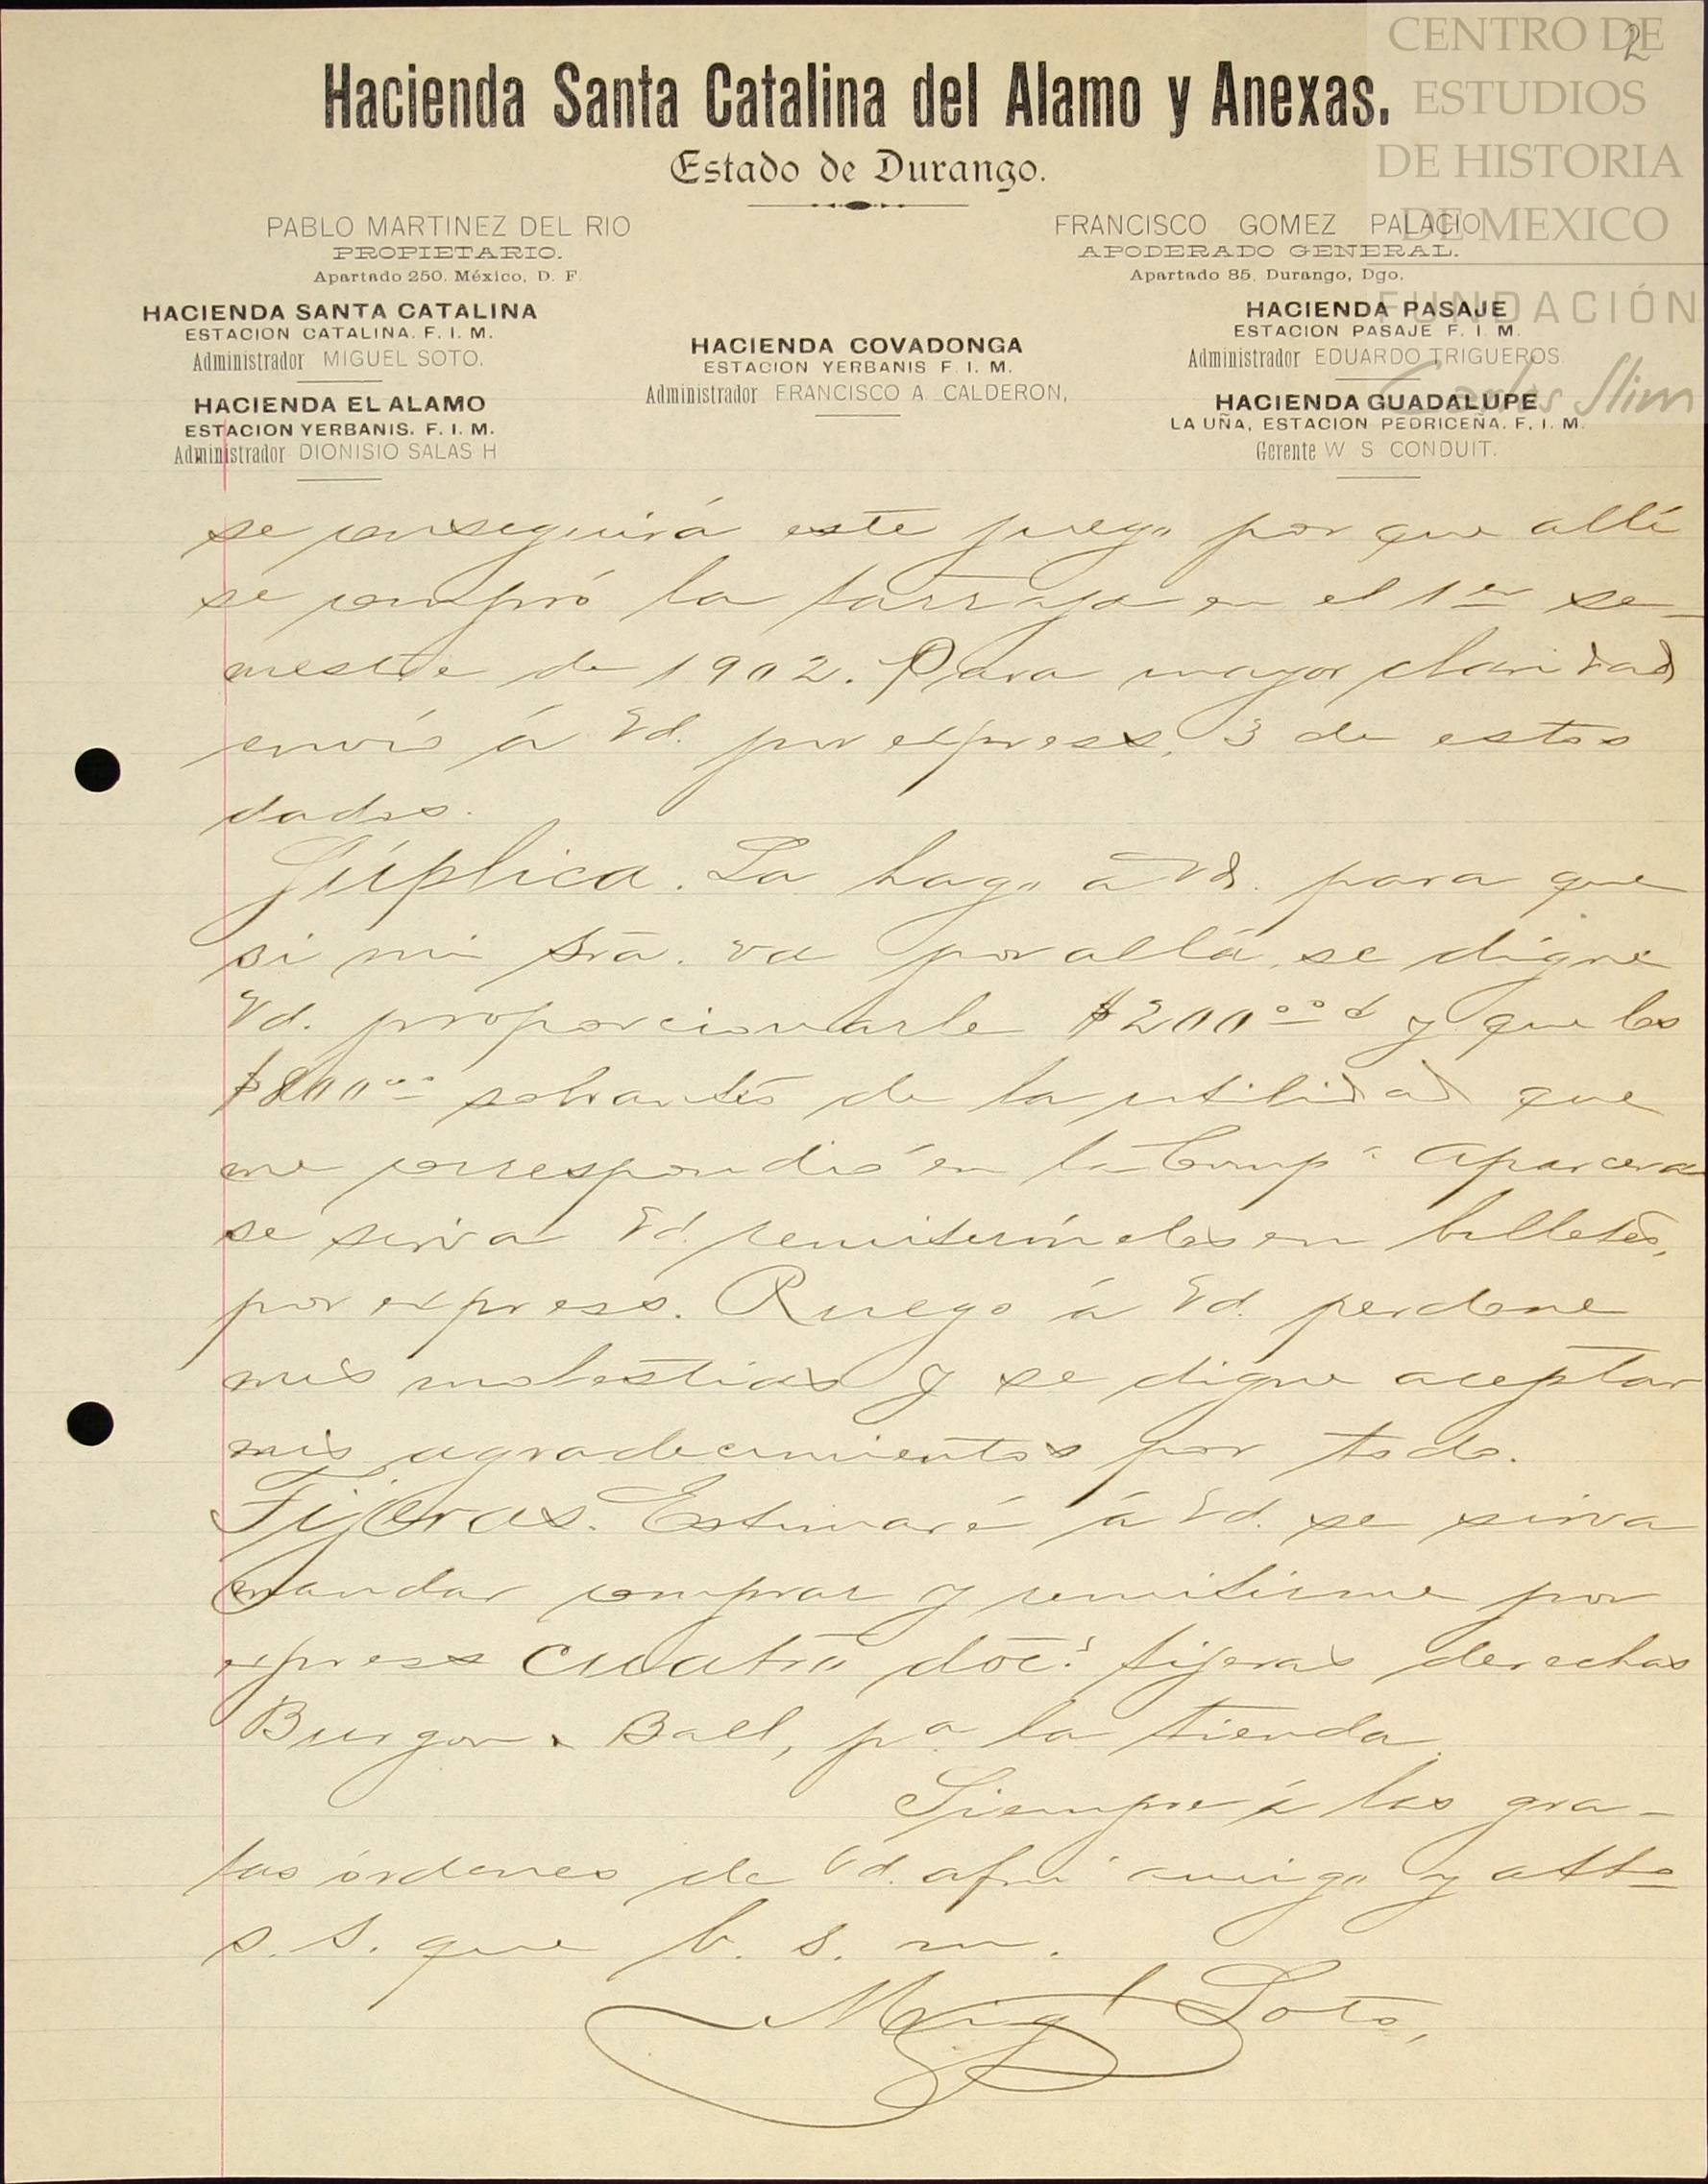 CENTRO DE
ESTUDIOS
DE HISTORIA
DE MEXICO
FUNDACIÓN
Carlos Slim
2
Hacienda Santa Catalina del Alamo y Anexas.
Estado de Durango.
PABLO MARTINEZ DEL RIO
PROPIETARIO.
Apartado 250. México, D. F.
FRANCISCO GOMEZ PALACIO
APODERADO GENERAL.
Apartado 85, Durango, Dgo.
HACIENDA SANTA CATALINA
ESTACION CATALINA. F. I. M.
Administrador MIGUEL SOTO.
HACIENDA EL ALAMO
ESTACION YERBANIS. F. I. M.
Administrador DIONISIO SALAS H
HACIENDA COVADONGA
ESTACION YERBANIS F. I. M.
Administrador FRANCISCO A. CALDERON,
HACIENDA PASAJE
ESTACION PASAJE F. I. M.
Administrador EDUARDO TRIGUEROS.
HACIENDA GUADALUPE
LA UÑA, ESTACION PEDRICEÑA. F. I. M.
Gerente W S CONDUIT.
se conseguirá este juego por que allí
se compró la tarraja en el 1er se-
mestre de 1902. Para mayor claridad
envio á Vd. por express, 3 de estos
dados.
Súplica. La hago á Vd. para que
si mi Sra. va por allá, se digne
Vd. proporcionarle $200.00 y que los
$800.00 sobrantes de la utilidad que
me correspondió en la Comp.a Aparcera
se sirva Vd. remitirmelos en billetes,
por express. Ruego á Vd. perdone
mis molestias y se digne aceptar
mis agradecimientos por todo.
Tijeras. Estimaré á Vd. se sirva
mandar comprar y remitirme por
express cuatro doc.s tijeras derechas
Burgon & Ball, pa la tienda.
Siempre á las gra-
tas órdenes de Vd. afmo amigo y atto
s. S. que b. s. m.
Migl Soto,